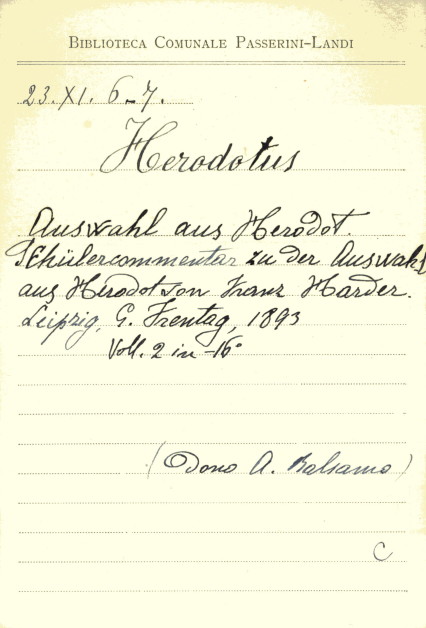 BIBLIOTECA COMUNALE PASSERINI-LANDI
23. XI. 6-7.
Herodotus
Auswahl aus Herodot.
Schülercommentar zu der Auswahl
aus Herodot von Franz Harder.
Leipzig, G. Frentag, 1893
Voll. 2 in -16°
(Dono A. Balsamo)
C